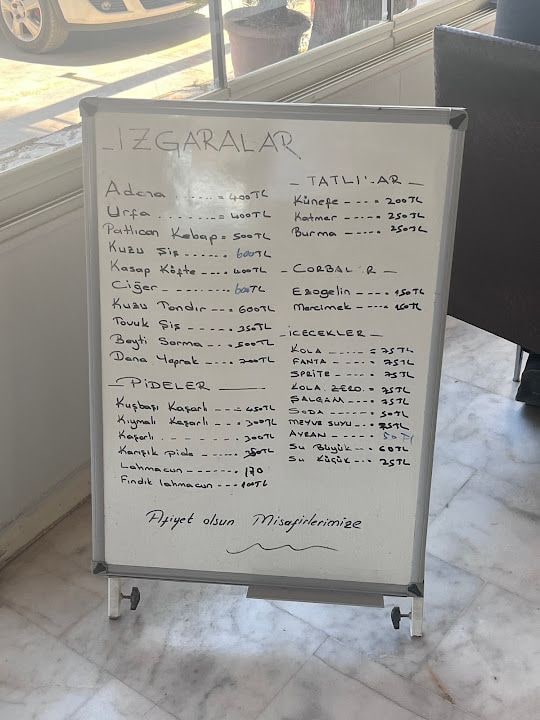 IZGARALAR
Adana ------ = 400TL
Urfa ------ = 400TL
Patlıcan Kebap = 500TL
Kuzu Şiş ---- 600TL
Kasap Köfte ---- 400TL
Ciğer ------ 600TL
Kuzu Tandır --- 600TL
Tavuk Şiş ----- 350TL
Beyti Sarma ---- 500TL
Dana Yaprak --- 700TL
PİDELER
Kuşbaşı Kaşarlı --- 450TL
Kıymalı Kaşarlı --- 300TL
Kaşarlı ------- 300TL
Karışık pide ---- 350TL
Lahmacun ---- 170
Fındık lahmacun --- 100TL
- TATLILAR -
Künefe ---- 200TL
Katmer ---- 250TL
Burma ---- 250TL
- ÇORBALAR -
Ezogelin ---- 150TL
Mercimek ---- 150TL
-İCECEKLER -
KOLA ----- = 75TL
FANTA ---- = 75TL
SPRİTE ---- = 75TL
KOLA ZERO - = 75TL
ŞALGAM ---- = 75TL
SODA ----- = 50TL
MEYVE SUYU -- = 75TL
AYRAN ---- = 50TL
Su Büyük --- = 60TL
Su Küçük --- = 25TL
Afiyet olsun Misafirlerimize